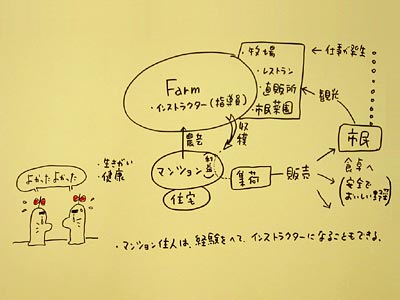 ・牧場
・レストラン
・直販所
・市民菜園
←仕事が発生
観光
Farm
・インストラクター(指導員)
農芸
収穫
市民
よかったよかった
・生きがい
・健康
マンション
住宅
集荷
販売
食卓へ
(安全で
おいしい野菜)
・マンション住人は、経験をへて、インストラクターになることもできる。